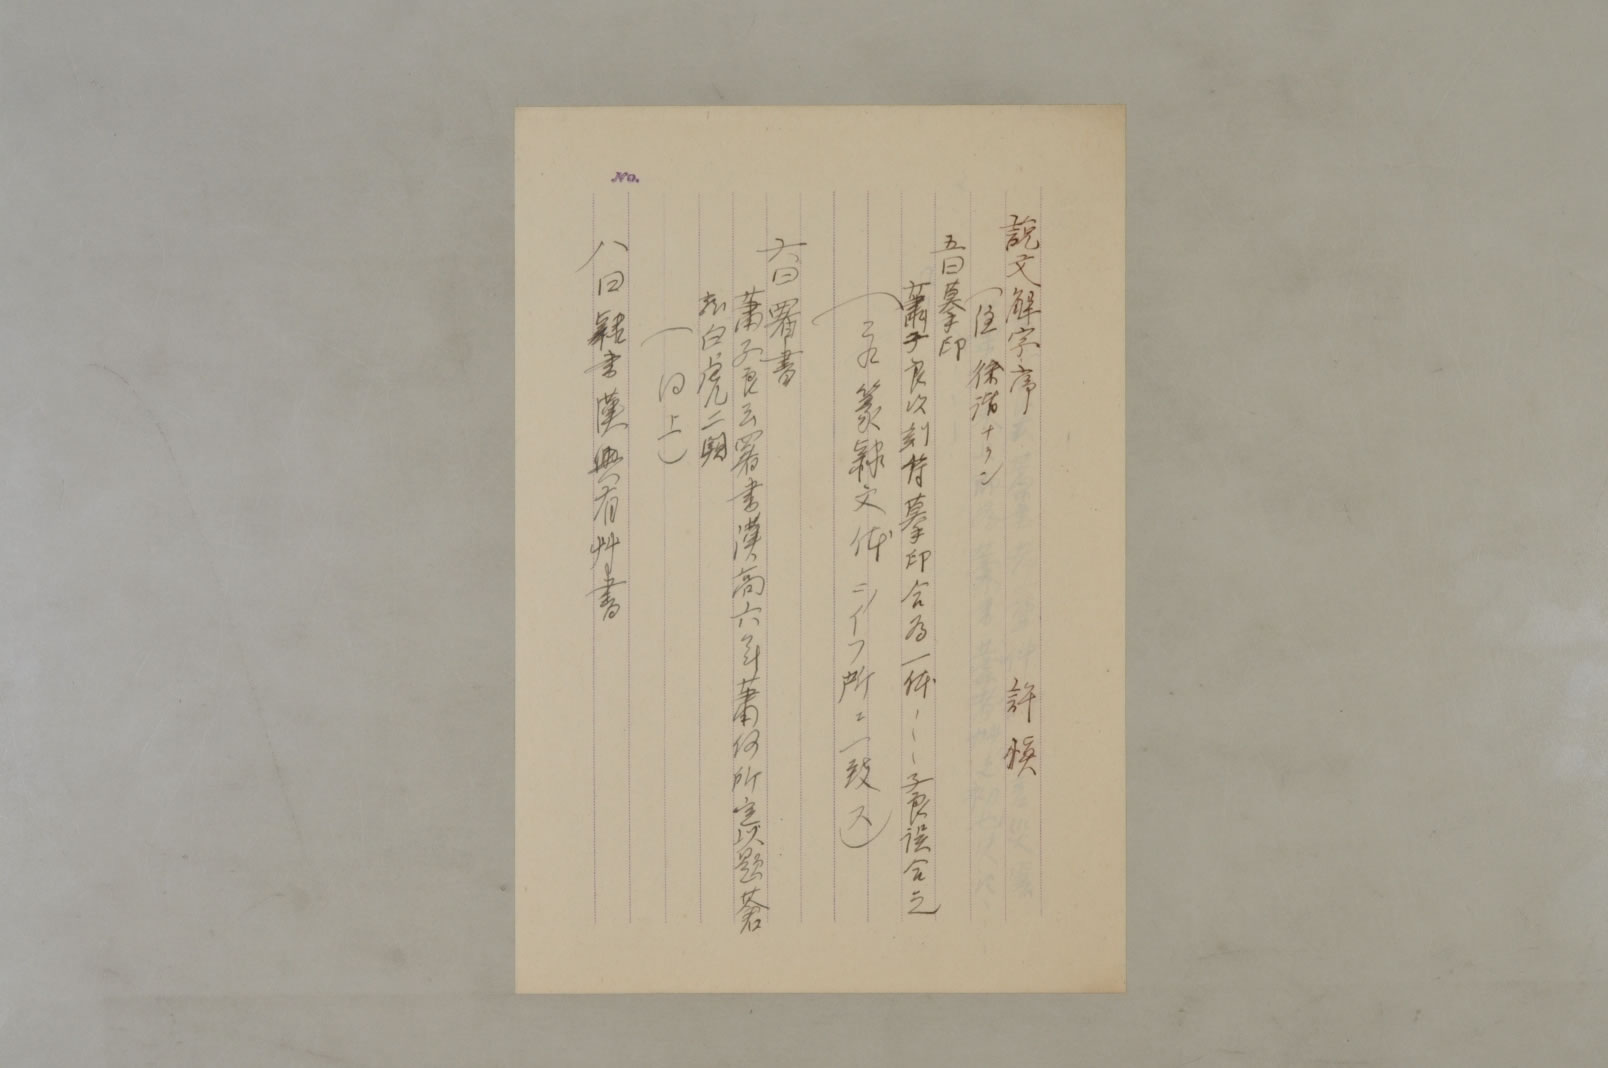 No.
説文解字序 許慎
(注 徐諧ナラン
五曰摹印
蕭子良以刻符摹印合為一体〻〻〻子良誤合之
(云〻篆隷文体ニイフ所ニ一致ス)
六曰署書
蕭子良云署書漢高六年蕭何所定以題蒼
龍白虎二闕
(同上)
八曰隷書漢興有艸書